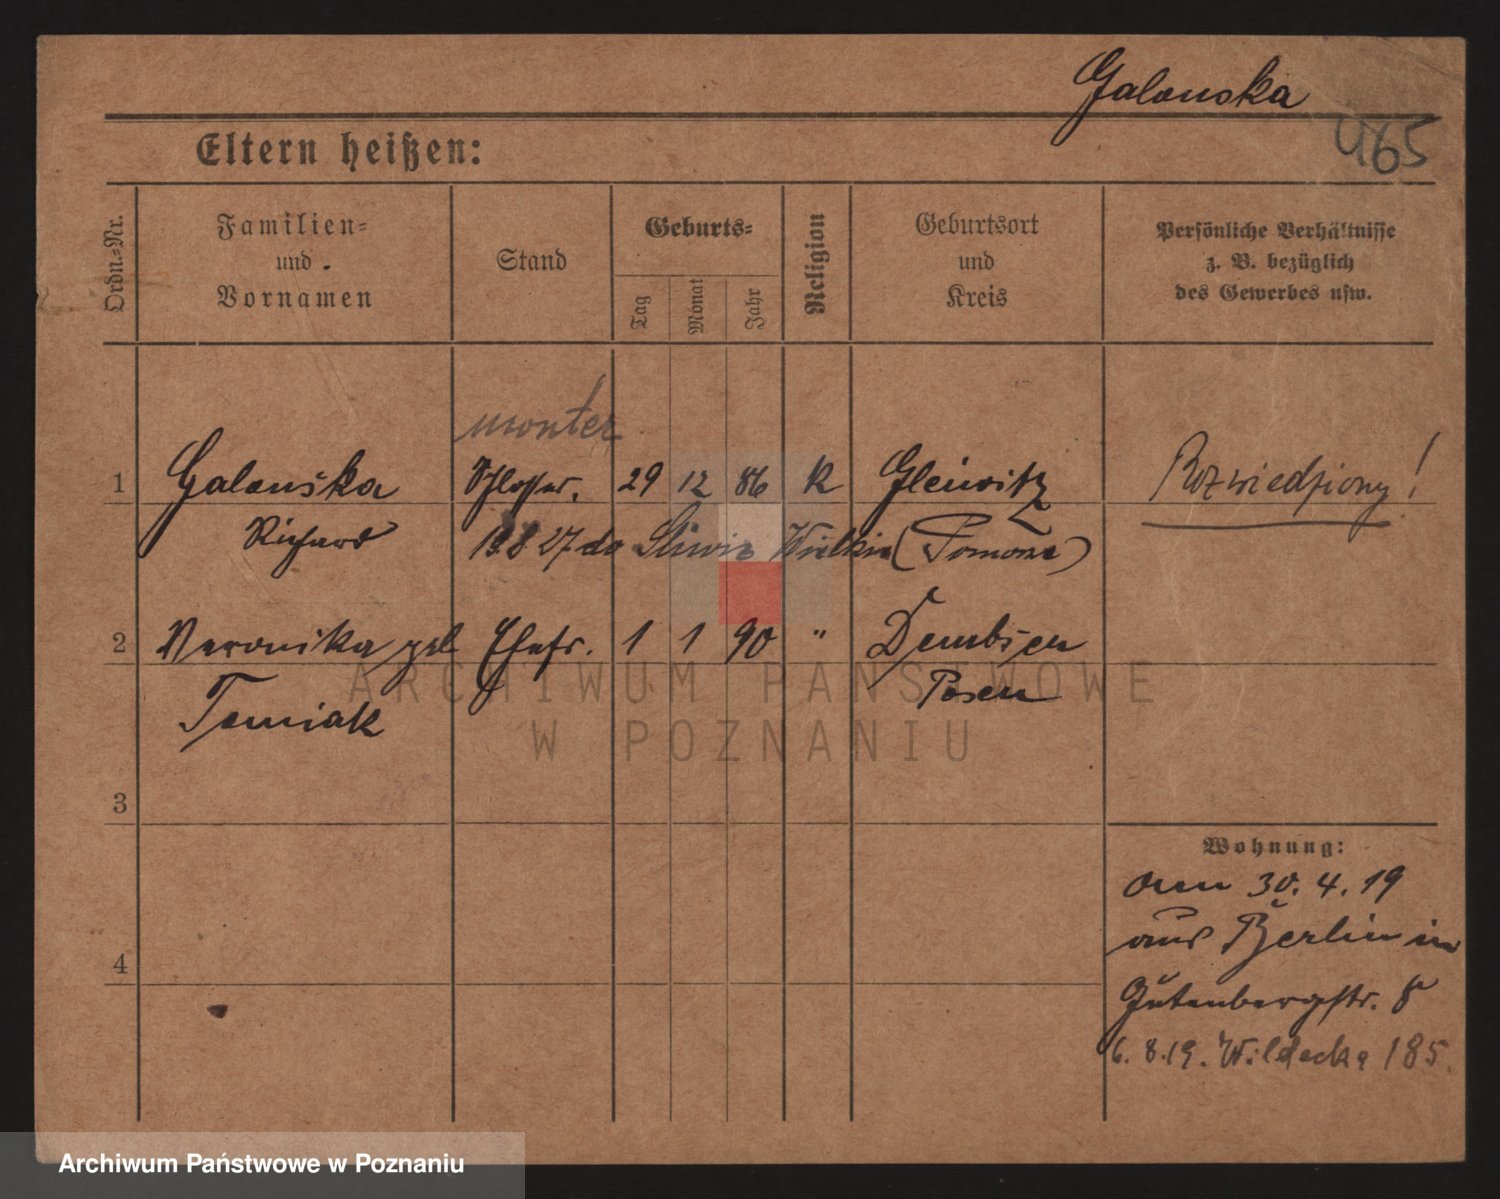 Galouska
465
Eltern heißen:
Ordn.-Nr.
Familien-
und
Vornamen
Stand
Geburts-
Tag
Monat
Jahr
Religion
Geburtsort
und
Kreis
Persönliche Verhältnisse
z. B. bezüglich
des Gewerbes usw.
monter
1 Galouska Schlosser. 29 12 86 K Gleiwitz Rozwiedziony!
Richard 19 8 27 do Śliwic Wielkie (Pomorze)
2 Veronika geb Ehefr. 1 1 90 " Dembsen
Tomiak Posen
3
Wohnung:
am 30. 4. 19
aus Berlin in
4
Gutenbergstr. 8
6. 8. 19. Wildecka 185.
ARCHIWUM PAŃSTWOWE
W POZNANIU
Archiwum Państwowe w Poznaniu